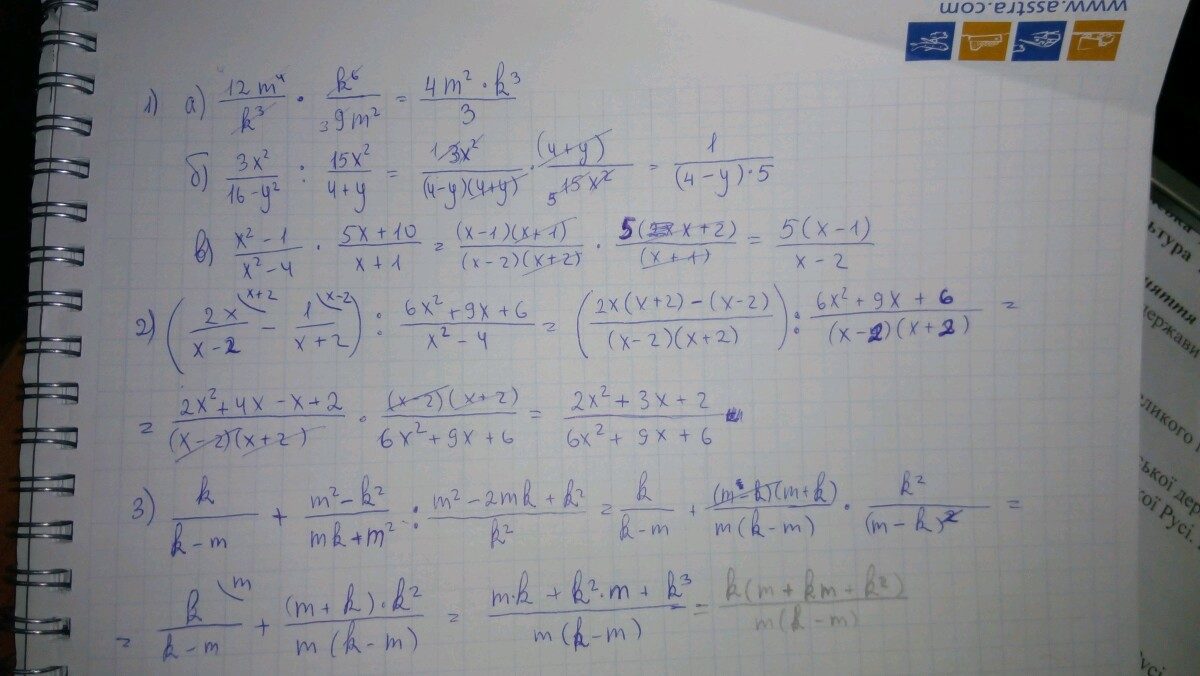 www.asstra.com
1) а) 12m⁴/k³ · k⁶/9m² 3 = 4m²·k³/3
б) 3x²/(16-y²) : 15x²/(4+y) = 1 3x²/((4-y)(4+y)) · (4+y)/(5 15x²) = 1/((4-y)·5)
в) (x²-1)/(x²-4) · (5x+10)/(x+1) = (x-1)(x+1)/((x-2)(x+2)) · 5(x+2)/(x+1) = 5(x-1)/(x-2)
2) (2x/(x-2) \x+2 - 1/(x+2) \x-2) : (6x²+9x+6)/(x²-4) = ((2x(x+2)-(x-2))/((x-2)(x+2))) : (6x²+9x+6)/((x-2)(x+2)) =
= (2x²+4x-x+2)/((x-2)(x+2)) · (x-2)(x+2)/(6x²+9x+6) = (2x²+3x+2)/(6x²+9x+6)
3) k/(k-m) + (m²-k²)/(mk+m²) : (m²-2mk+k²)/k² = k/(k-m) + (m-k)(m+k)/(m(k-m)) · k²/(m-k)² =
= k/(k-m) \m + (m+k)·k²/(m(k-m)) = (m·k+k²·m+k³)/(m(k-m)) = k(m+km+k²)/(m(k-m))
ьтура
няття
держави
еликого
ської дер
кої Русі.